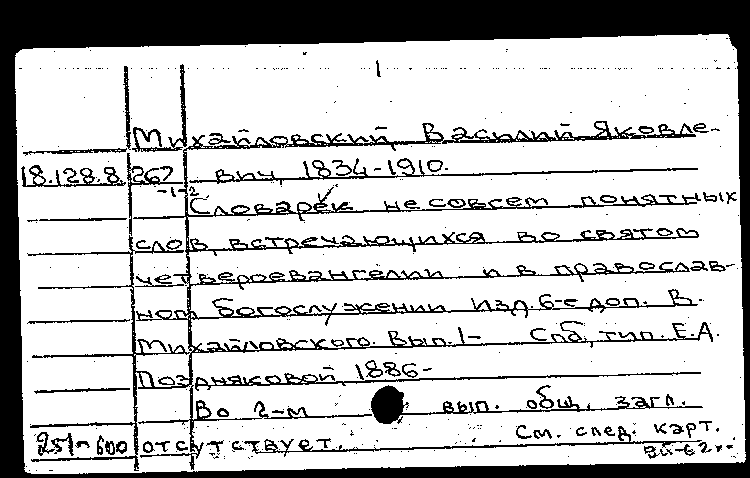 Михайловский, Василий Яковле-
18.128.8.267 вич, 1834-1910.
-1-2
Словарёк не совсем понятных
слов, встречающихся во святом
четвероевангелии и в православ-
ном богослужении Изд. 6-е доп. В.
Михайловского. Вып. 1- Спб, тип. Е.А.
Поздняковой, 1886-
Во 2-м вып. общ. загл.
отсутствует. См. след. карт.